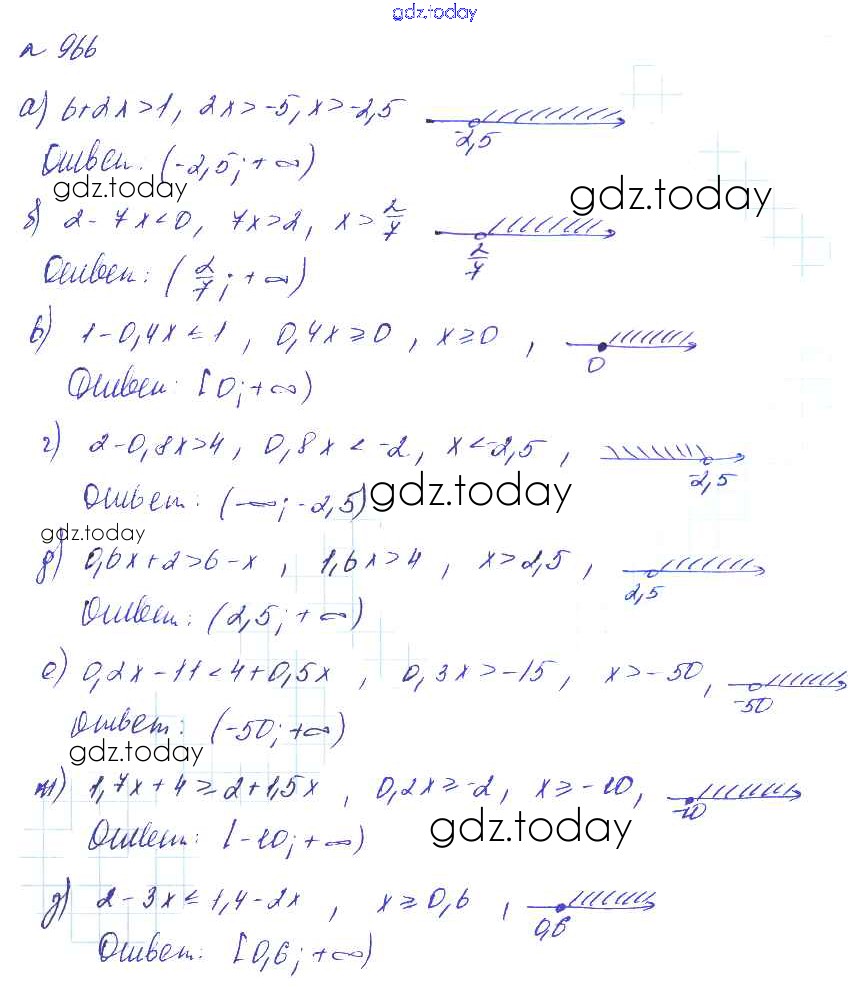 gdz.today
п 966
а) 6+2x>1, 2x>-5, x>-2,5 -2,5
Ответ: (-2,5; +∞)
gdz.today gdz.today
б) 2-7x<0, 7x>2, x>2/7 2/7
Ответ: (2/7; +∞)
в) 1-0,4x≤1, 0,4x≥0, x≥0, 0
Ответ: [0; +∞)
г) 2-0,8x>4, 0,8x<-2, x<-2,5, -2,5
Ответ: (-∞; -2,5) gdz.today
gdz.today
д) 0,6x+2>6-x, 1,6x>4, x>2,5, 2,5
Ответ: (2,5; +∞)
е) 0,2x-11<4+0,5x, 0,3x>-15, x>-50, -50
Ответ: (-50; +∞)
gdz.today
ж) 1,7x+4≥2+1,5x, 0,2x≥-2, x≥-10, -10
Ответ: [-10; +∞) gdz.today
з) 2-3x≤1,4-2x, x≥0,6, 0,6
Ответ: [0,6; +∞)